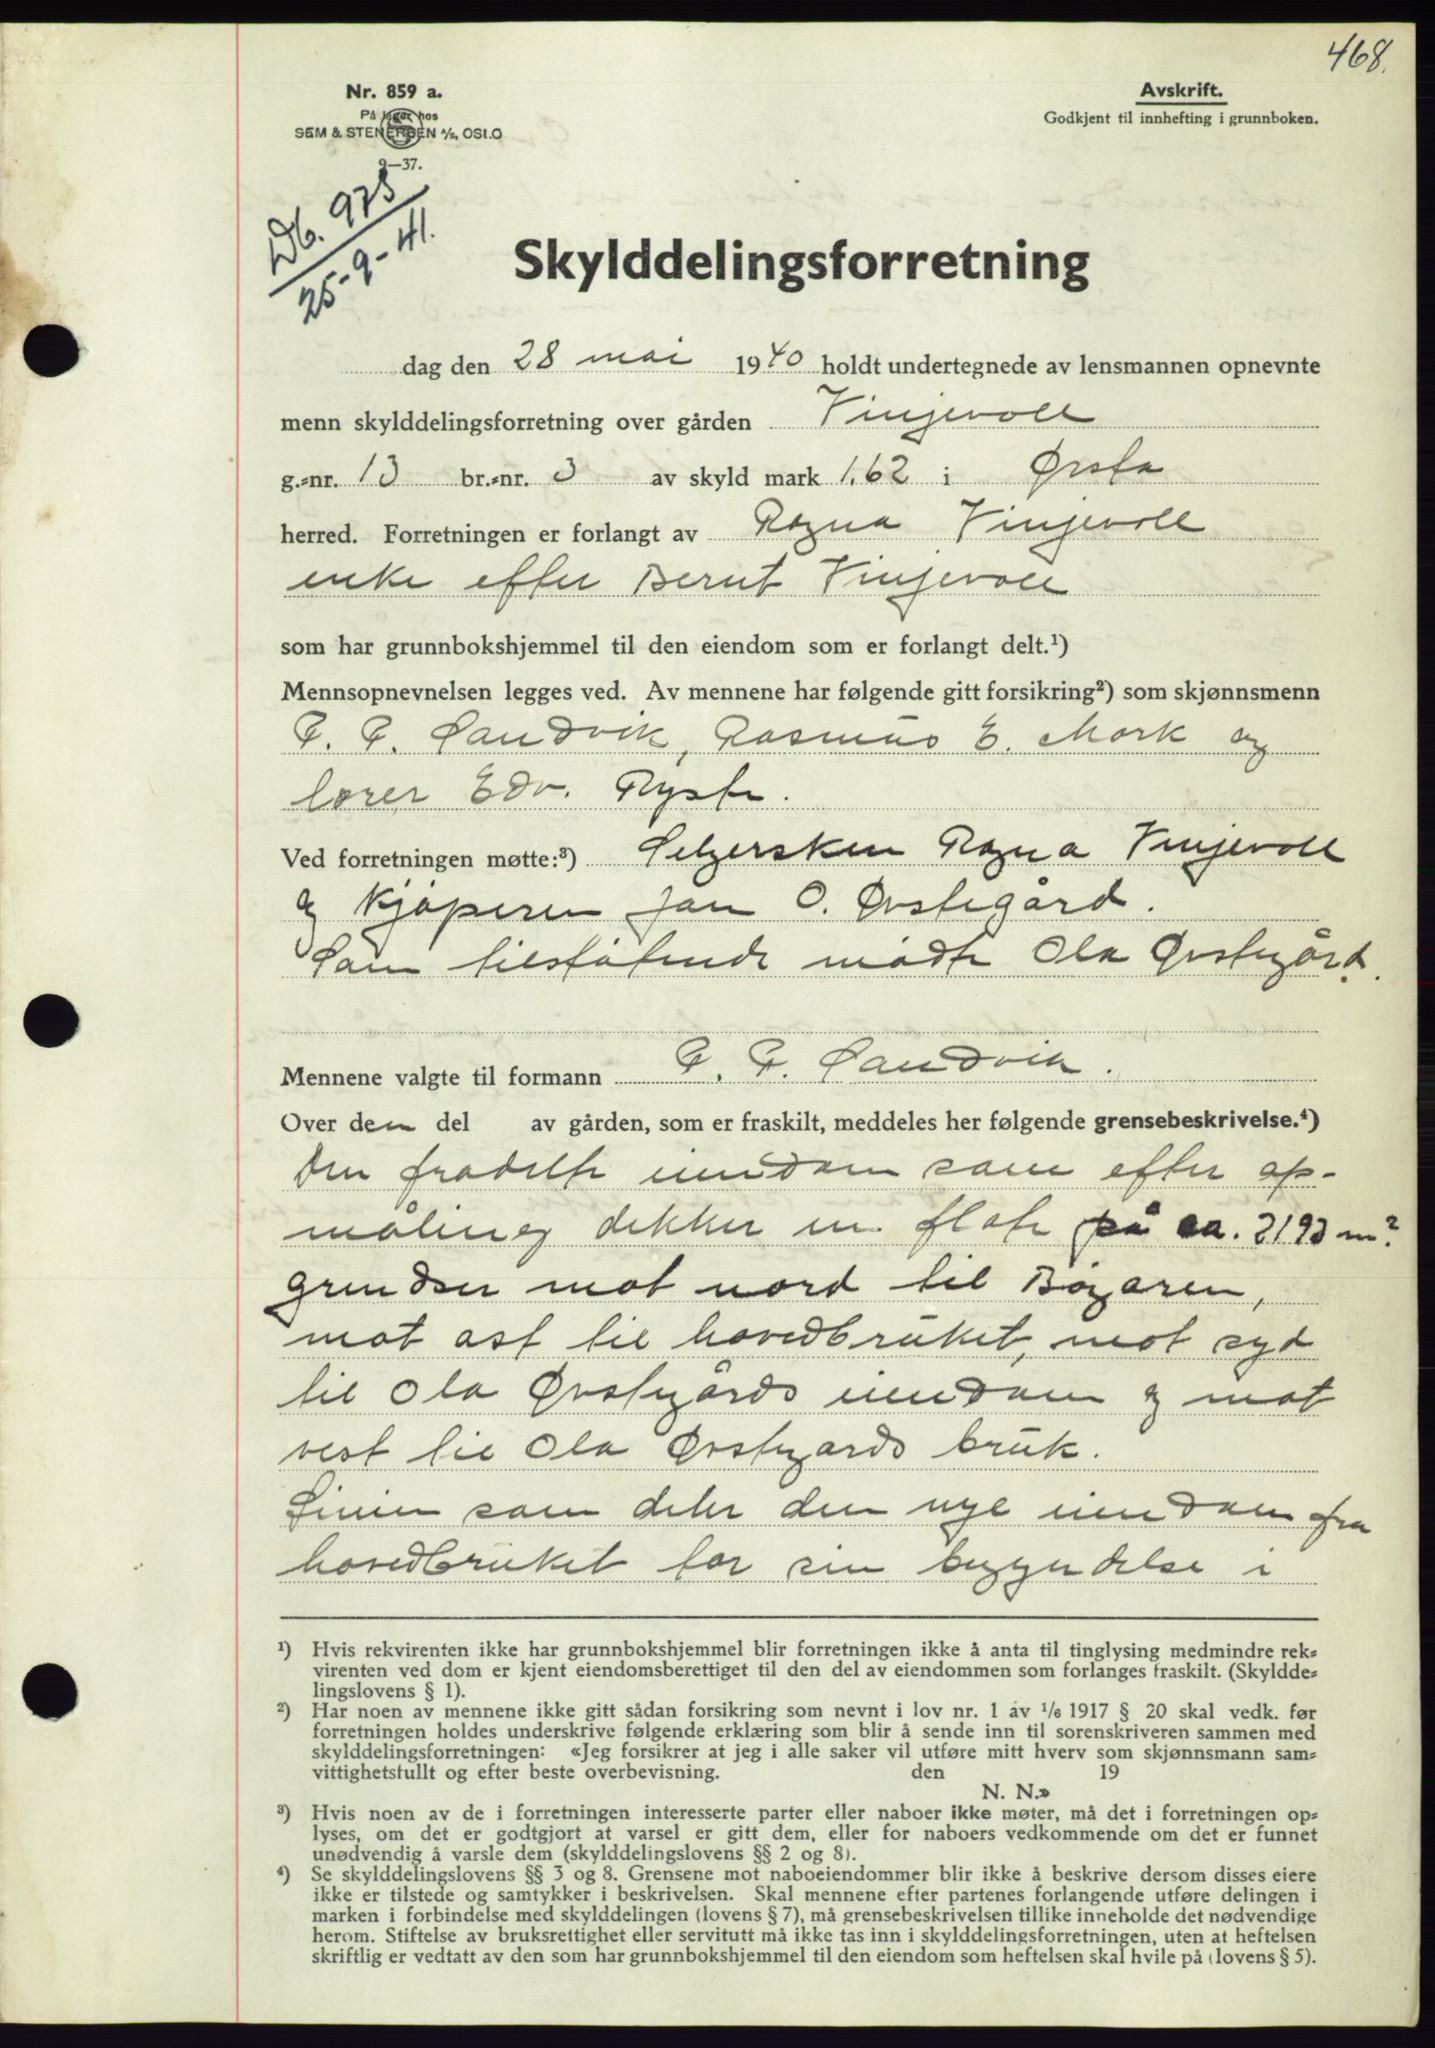 468.
Nr. 859 a.
På lager hos
SEM & STENERSEN A/S, OSLO
9—37.
Avskrift.
Godkjent til innhefting i grunnboken.
Db. 975
25-9-41.
Skylddelingsforretning
dag den 28 mai 1940 holdt undertegnede av lensmannen opnevnte
menn skylddelingsforretning over gården Vinjevoll
g.=nr. 13 br.=nr. 3 av skyld mark 1,62 i Ørsta
herred. Forretningen er forlangt av Ragna Vinjevoll
enke efter Bernt Vinjevoll
som har grunnbokshjemmel til den eiendom som er forlangt delt.¹)
Mennsopnevnelsen legges ved. Av mennene har følgende gitt forsikring²) som skjønnsmenn
P. P. Sandvik, Rasmus E. Mork og
lærer Edv. Ryste.
Ved forretningen møtte:³) Selgersken Ragna Vinjevoll
og Kjøperen Jan O. Ørstegård.
Som tilstøtende mødte Ola Ørstegård.
Mennene valgte til formann P. P. Sandvik.
Over den del av gården, som er fraskilt, meddeles her følgende grensebeskrivelse.⁴)
Den fradelte eiendom som efter op-
måling dekker en flate på ca. 2193 m²
grendser mot nord til Bøgaren,
mot ost til hovedbruket, mot syd
til Ola Ørstegårds eiendom og mot
vest til Ola Ørstegards bruk.
Linien som deler den nye eiendom fra
hovedbruket tar sin begyndelse i
¹) Hvis rekvirenten ikke har grunnbokshjemmel blir forretningen ikke å anta til tinglysing medmindre rek=
virenten ved dom er kjent eiendomsberettiget til den del av eiendommen som forlanges fraskilt. (Skyldde=
lingslovens § 1).
²) Har noen av mennene ikke gitt sådan forsikring som nevnt i lov nr. 1 av 1/6 1917 § 20 skal vedk. før
forretningen holdes underskrive følgende erklæring som blir å sende inn til sorenskriveren sammen med
skylddelingsforretningen: «Jeg forsikrer at jeg i alle saker vil utføre mitt hverv som skjønnsmann sam=
vittighetsfullt og efter beste overbevisning. den 19
N. N.»
³) Hvis noen av de i forretningen interesserte parter eller naboer ikke møter, må det i forretningen op=
lyses, om det er godtgjort at varsel er gitt dem, eller for naboers vedkommende om det er funnet
unødvendig å varsle dem (skylddelingslovens §§ 2 og 8).
⁴) Se skylddelingslovens §§ 3 og 8. Grensene mot naboeiendommer blir ikke å beskrive dersom disses eiere
ikke er tilstede og samtykker i beskrivelsen. Skal mennene efter partenes forlangende utføre delingen i
marken i forbindelse med skylddelingen (lovens § 7), må grensebeskrivelsen tillike inneholde det nødvendige
herom. Stiftelse av bruksrettighet eller servitutt må ikke tas inn i skylddelingsforretningen, uten at heftelsen
skriftlig er vedtatt av den som har grunnbokshjemmel til den eiendom som heftelsen skal hvile på (lovens § 5).